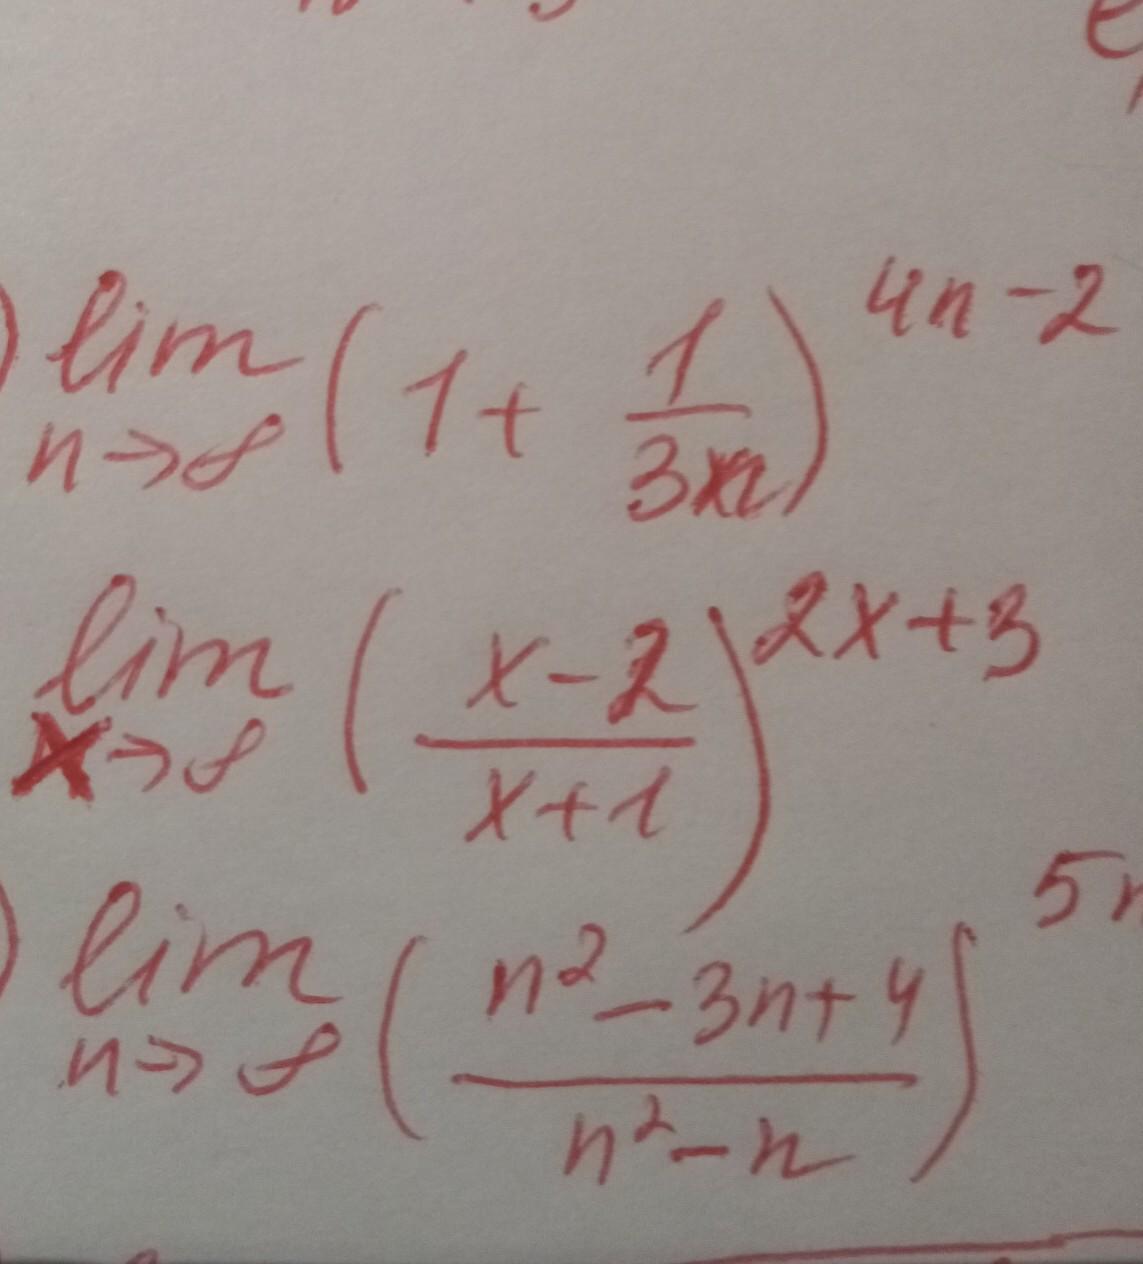 ) lim n→∞ (1 + 1/3n)^4n-2
lim x→∞ (x-2/x+1)^2x+3
) lim n→∞ (n²-3n+4/n²-n)^5n